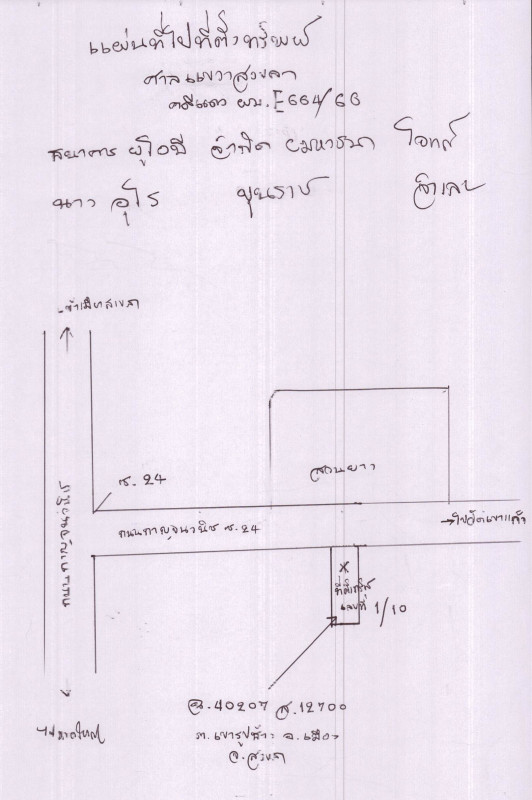 แผนที่ไปที่ตั้งทรัพย์
ศาลแขวงสงขลา
คดีแดง ผบ.E664/66
ธนาคาร ยูโอบี จำกัด มหาชน โจทก์
นาง อุไร ขุนราช จำเลย
เข้าเมืองสงขลา
ซ. 24
สวนยาง
ถนนกาญจนวนิช
ถนนกาญจนวนิช ซ. 24
→ไปวัดเขาแก้ว
ที่ตั้งทรัพย์
เลขที่ 1/10
ฉ.40207 ส.12700
ต. เขารูปช้าง อ.เมือง
จ.สงขลา
ไปหาดใหญ่